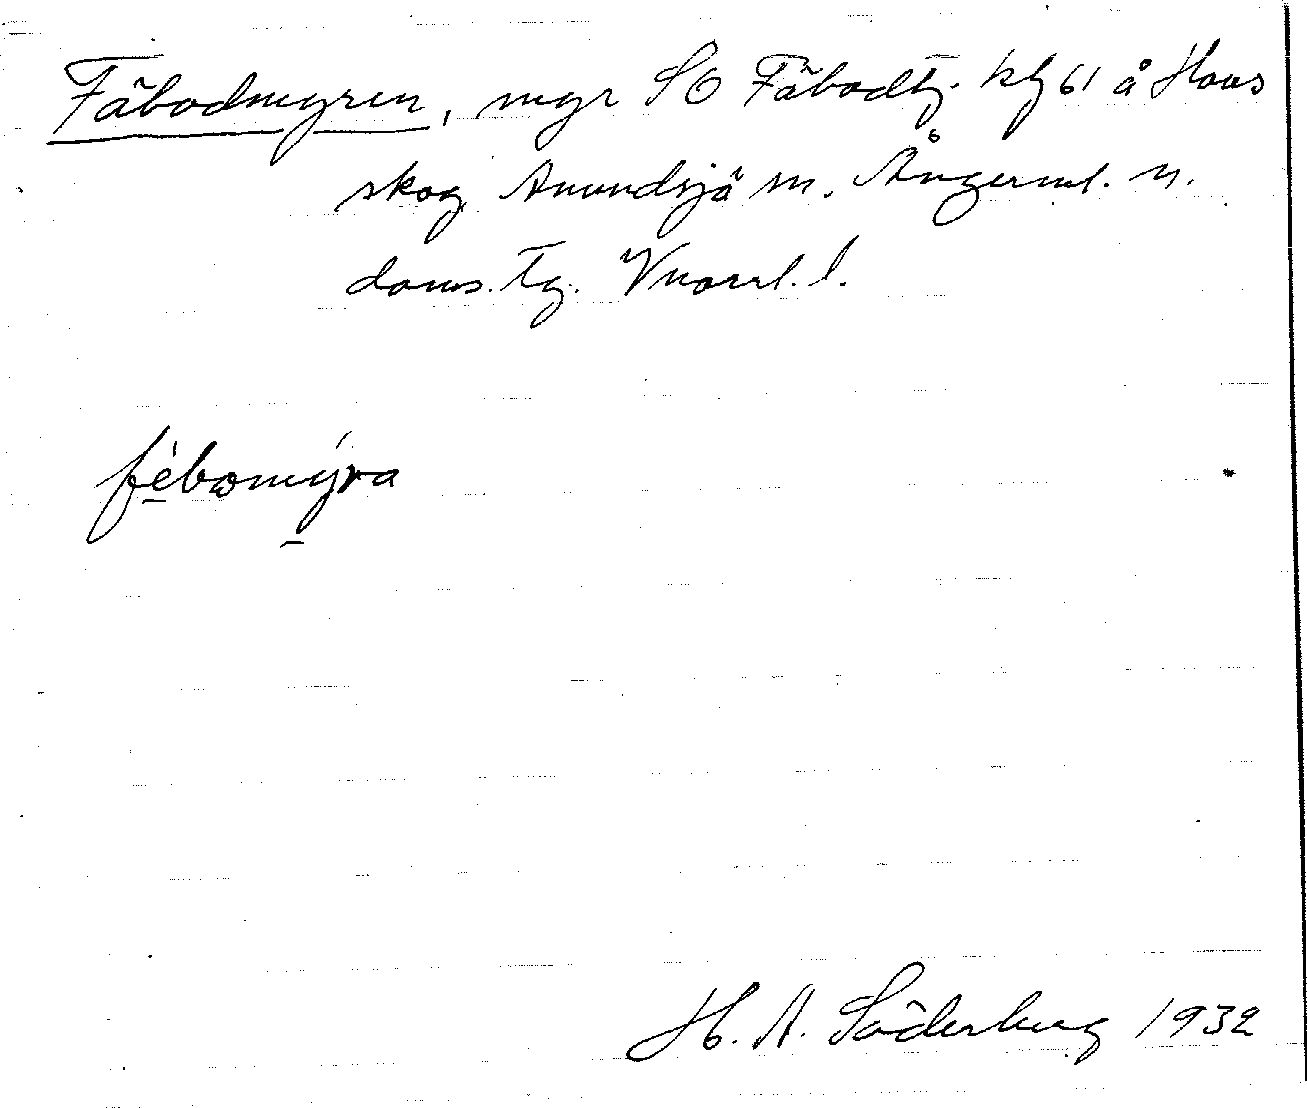 Fäbodmyren, myr SO Fäbodtj. kbl 61 å Hoas
skog Anundsjö sn. Ångerml. n.
doms. tg. Vnorrl. l.
fèbωmýra
H. A. Söderberg 1932